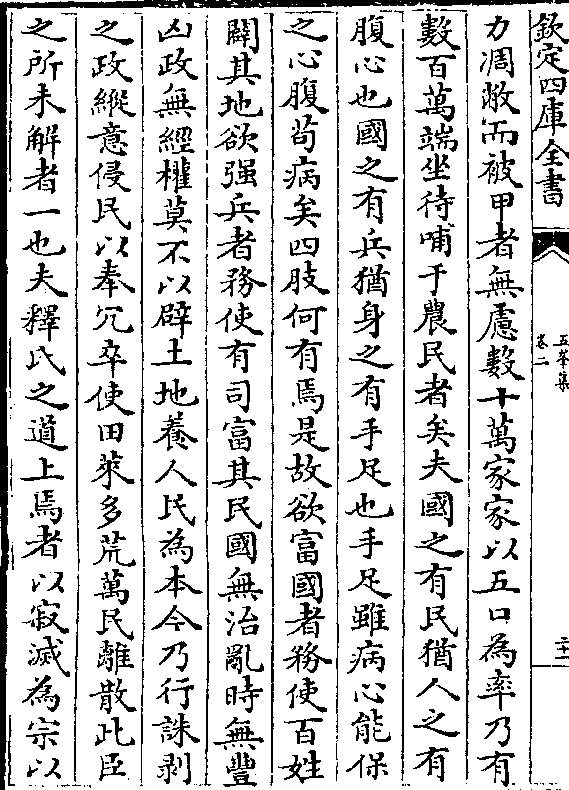 欽定四庫全書
五峯集
卷二
二十一
力凋敝而被甲者無慮數十萬家家以五口為率乃有
數百萬端坐待哺于農民者矣夫國之有民猶人之有
腹心也國之有兵猶身之有手足也手足雖病心能保
之心腹苟病矣四肢何有焉是故欲富國者務使百姓
闢其地欲强兵者務使有司富其民國無治亂時無豐
凶政無經權莫不以辟土地養人民為本今乃行誅剥
之政縱意侵民以奉冗卒使田萊多荒萬民離散此臣
之所未解者一也夫釋氏之道上焉者以寂滅為宗以